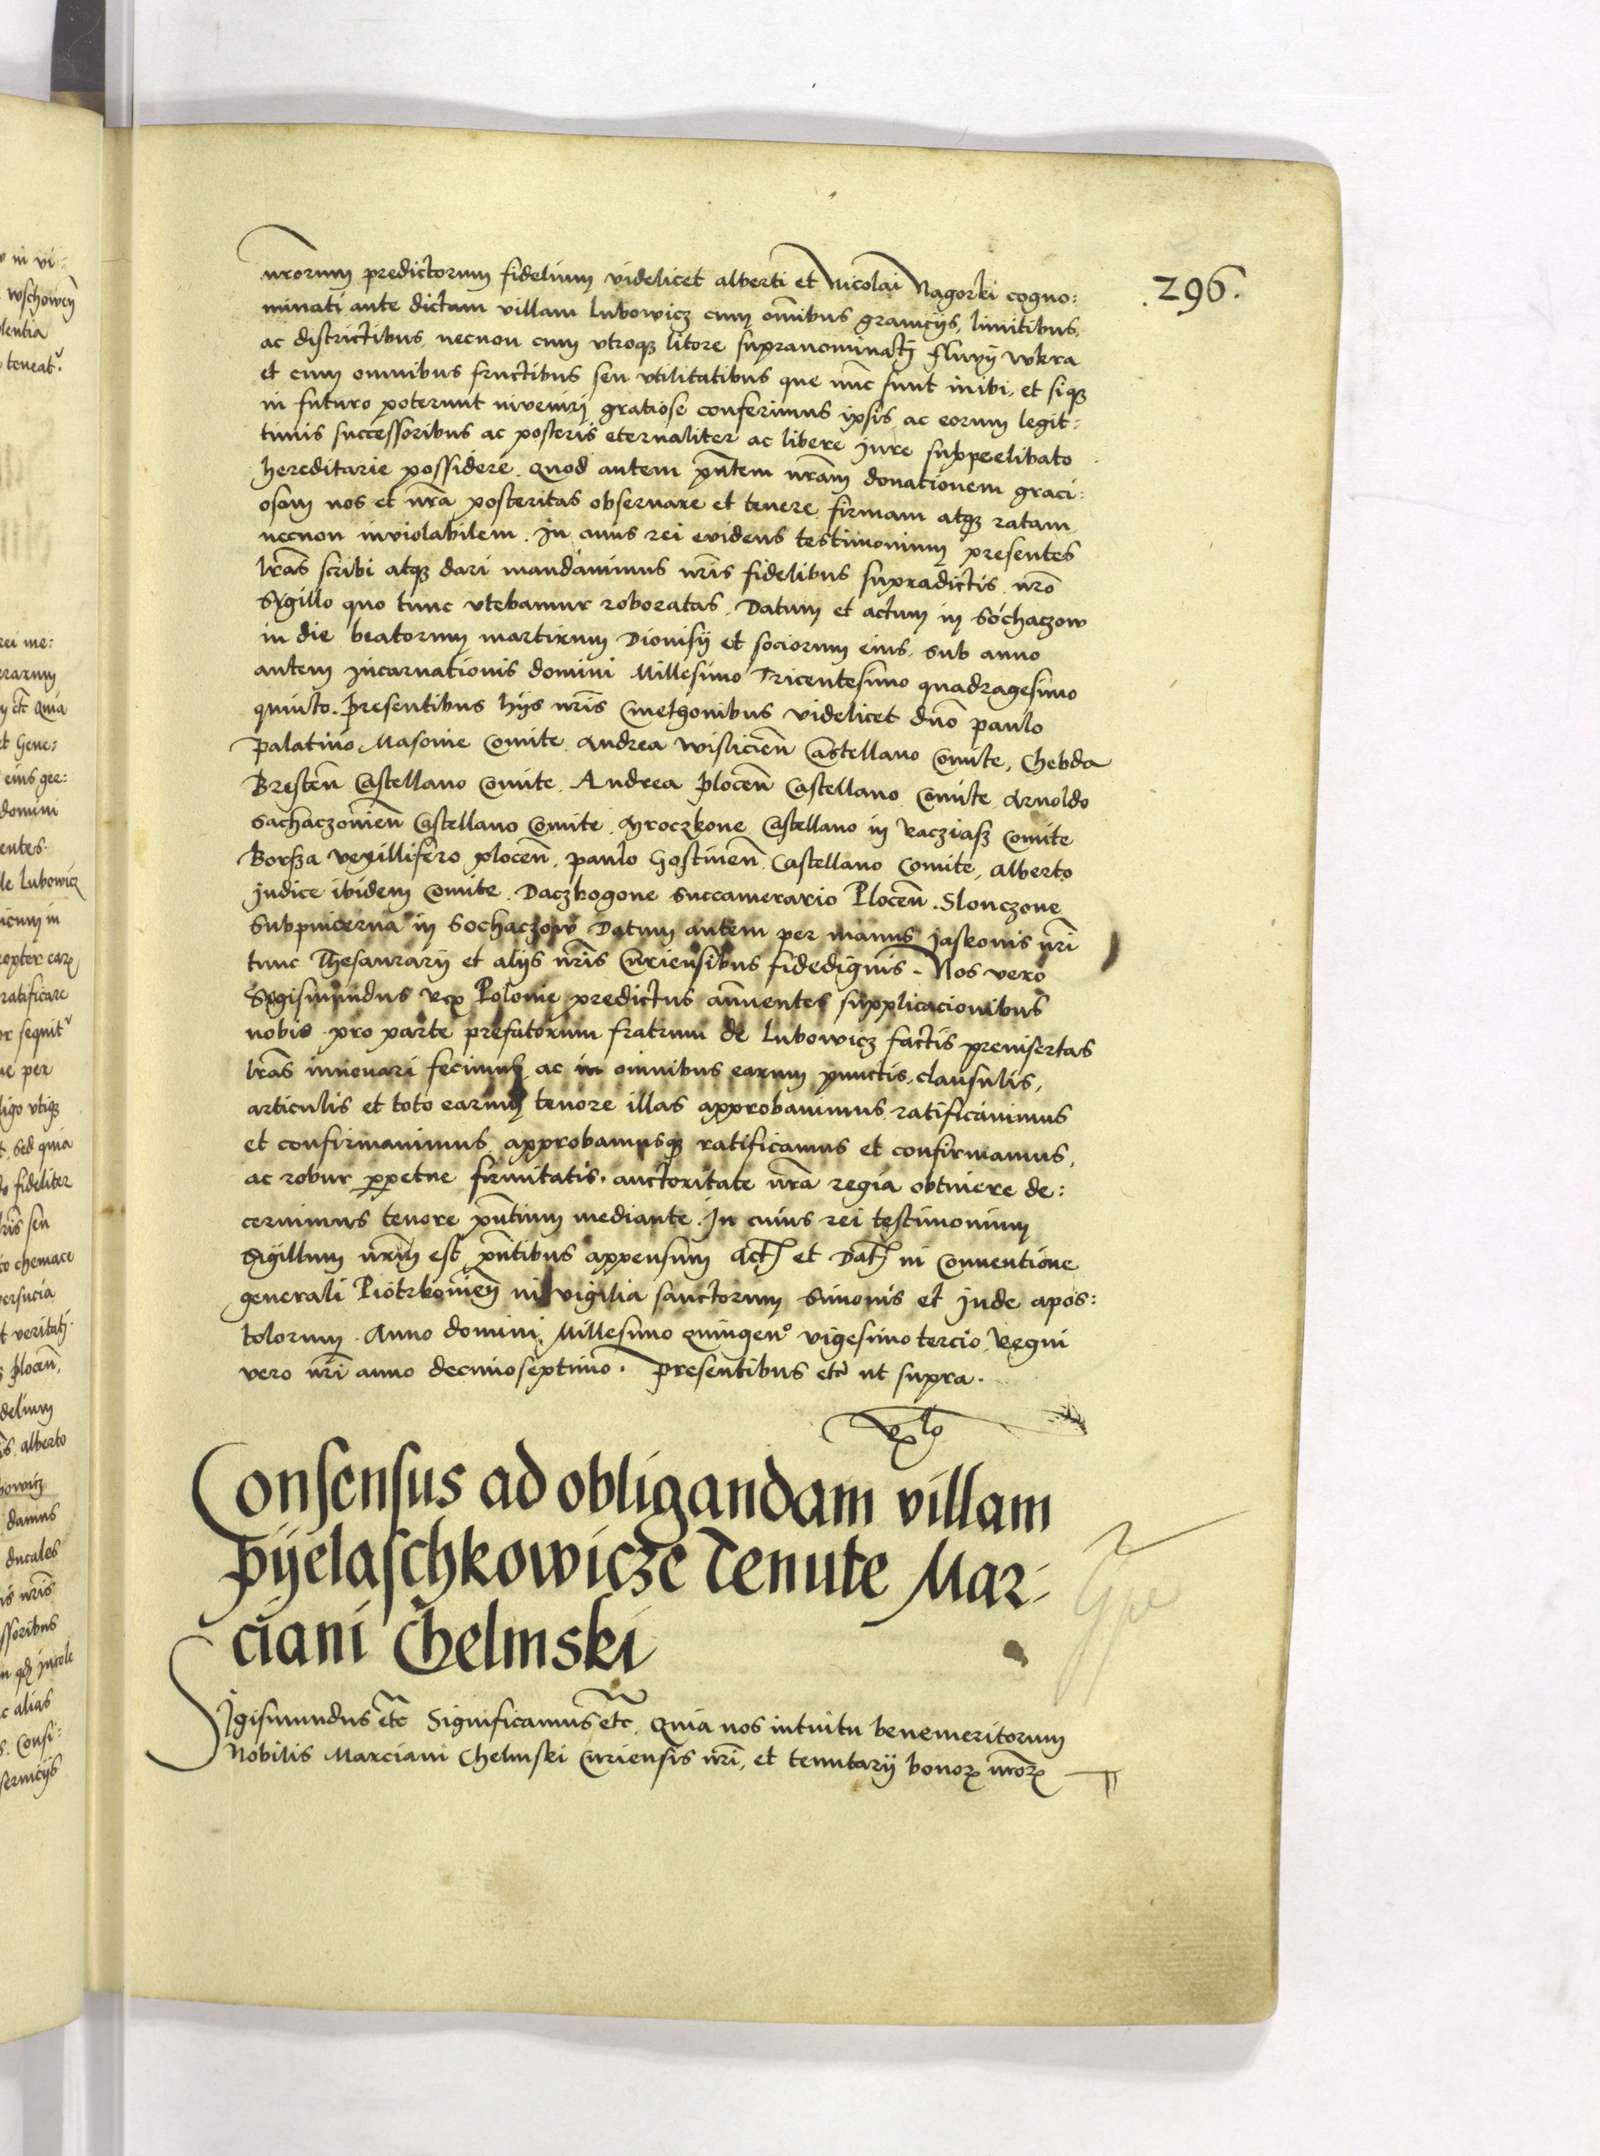 296.
nrorum predictorum fidelium videlicet alberti et Nicolai Nagorki cogno:
minati ante dictam villam Lubowicz cum om̅ibus granicijs, limitibus,
ac districtibus necnon cum vtroqꝫ litore supranominatj fluvij wkra
et cum omnibus fructibus seu vtilitatibus que nu̅c sunt inibi, et siqꝫ
in futuro poterunt inveniri gratiose conferimus ipsis ac eorum legit:
timis successoribus ac posteris eternaliter ac libere jure suppeelibato
hereditarie possidere. Quod autem pn̅tem nr̅am donationem graci:
osam nos et nr̅a posteritas obseruare et tenere firmam atqꝫ ratam
necnon inviolabilem. In cuius rei evidens testimonium presentes
lr̅as scribi atqꝫ dari mandauimus nr̅is fidelibus supradictis nr̅o
Sygillo quo tunc vtebamur roboratas. Datum et actum in Sochaczow
in die beatorum martirum Dionisij et sociorum eius, sub anno
autem Incarnationis domini Millesimo Tricentesimo quadragesimo
quinto. Presentibus hijs nr̅is Cmethonibus videlicet dno̅ paulo
palatino Masouie Comite Andrea wislicien̅ Castellano Comite, Chebda
Bresten̅ Castellano Comite, Andrea Plocen̅ Castellano Comite Arnoldo
Sachaczouien̅ Castellano Comite, Mroczkone Castellano in Racziasz Comite
Borsza vexillifero plocen̅, paulo Gostinen̅ Castellano Comite, Alberto
Judice ibidem Comite. Daczbogone succamerario Plocen̅. Slonczone
Subpincerna in Sochaczow Datum autem per manus Jaskonis nr̅i
tunc Thesaurarij et alijs nr̅is Curiensibus fidedignis. Nos vero
Sygismundus Rex Polonie predictus annuentes supplicacionibus
nobis pro parte prefatorum fratrum de Lubowicz factis preinsertas
lr̅as innouari fecimus ac in omnibus earum punctis, clausulis,
articulis et toto earum tenore illas approbauimus ratificauimus
et confirmauimus approbamusqꝫ ratificamus et confirmamus,
ac robur ꝑpetue firmitatis, auctoritate nr̅a regia obtinere de:
cernimus tenore pn̅tium mediante. In cuius rei testimonium
Sigillum nr̅um est pn̅tibus appensum Act̅ et Dat̅ in Conuentione
generali Piotrkouien̅ in vigilia sanctorum Simonis et Jude apos:
tolorum. Anno domini Millesimo quingen° vigesimo tercio, Regni
vero nr̅i anno decimoseptimo. Presentibus etc̅ ut supra.
Consensus ad obligandam villam
Pyelaschkowicze Tenute Mar-
ciani Chelmski
Sigismundus etc̅ Significamus etc̅, Quia nos intuitu benemeritorum
Nobilis Marciani Chelmski Curiensis nr̅i, et tenutarij bonoꝝ nr̅oꝝ